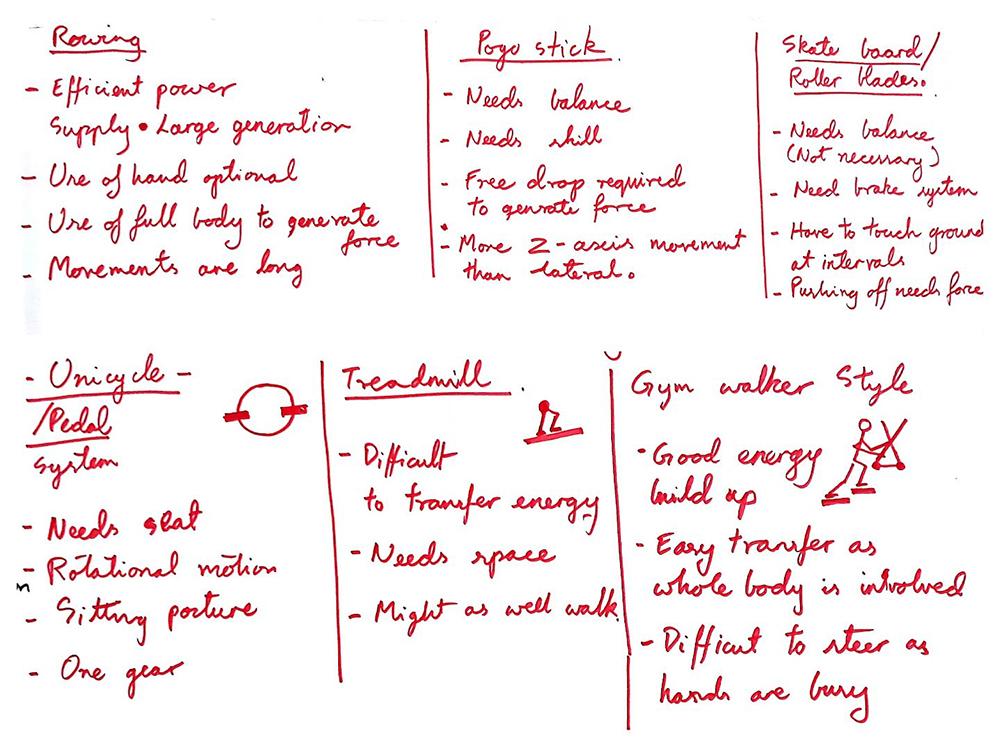 Rowing
- Efficient power
Supply • Large generation
- Use of hand optional
- Use of full body to generate
force
- Movements are long
Pogo stick
- Needs balance
- Needs skill
- Free drop required
to genrate force
- More Z-axis movement
than lateral.
Skate board/
Roller blades.
- Needs balance
(Not necessary)
- Need brake system
- Have to touch ground
at intervals
- Pushing off needs force
- Unicycle -
/Pedal
System
- Needs seat
- Rotational motion
- Sitting posture
- One gear
Treadmill
- Difficult
to transfer energy
- Needs space
- Might as well walk
Gym walker Style
- Good energy
build up
- Easy transfer as
whole body is involved
- Difficut to steer as
hands are busy